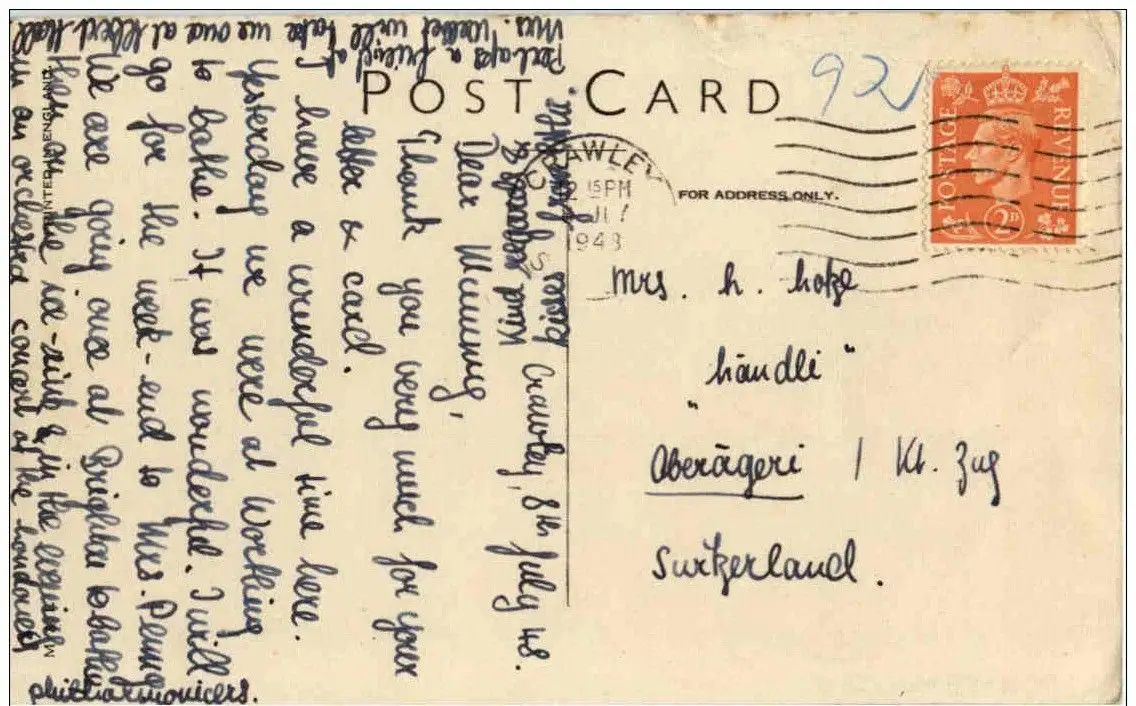 POST CARD
FOR ADDRESS ONLY.
92
CRAWLEY
12 15 PM
JLY
1948
POSTAGE
REVENUE
2D
Mrs. h. hotze
"händli"
Oberägeri / Kt. Zug
Switzerland.
Crawley, 8th July 48.
Dear Mummy,
Thank you very much for your
letter & card.
I have a wunderful time here.
Yesterday we were at Worthing
to bathe. It was wonderful. I will
go for the week-end to Mrs.
We are going once at Brighton to bathe
then on the ice-rink & in the evening
in an orchestra concert of the Londoner
philharmonicers.
Perhaps a friend of
Mrs. will take me once at Albert Hall
Kind
kisses